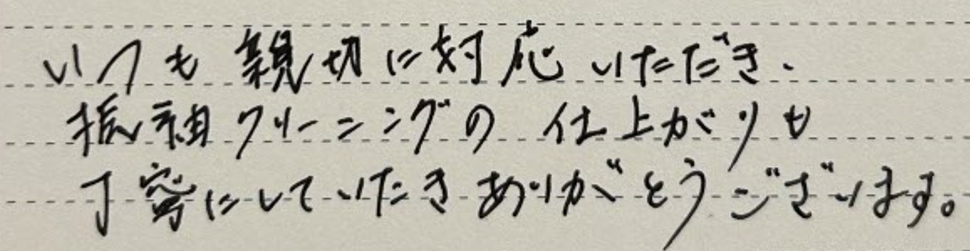 いつも親切に対応いただき、
振袖クリーニングの仕上がりも
丁寧にしていたきありがとうございます。